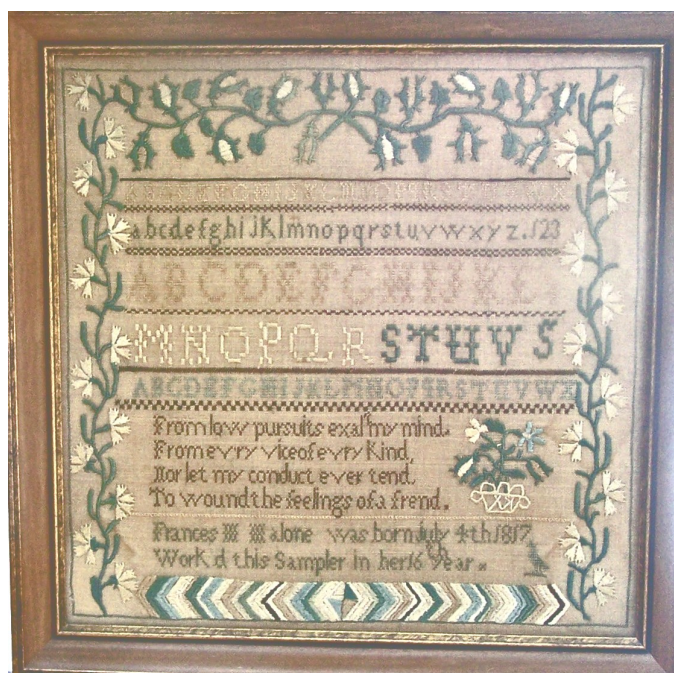 ABCDEFGHIJKLMNOPQRSTUVWX
abcdefghijKlmnopqrstuvwxyz.123
ABCDEFGHIJKL
MNOPQRSTUVS
ABCDEFGHIJKLMNOPQRSTUVWX
From low pursuits exalt my mind.
From evry vice of evry Kind,
Nor let my conduct ever tend,
To wound the feelings of a frend.
Frances M Malone was born July 4th 1817
Work,d this Sampler in her 16th Year.